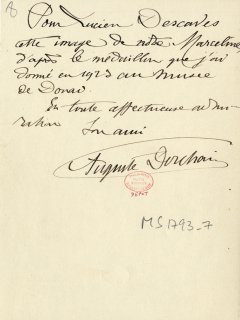 8
Pour Lucien Descaves
cette image de notre Marceline
d'après le médaillon que j'ai
donné en 1923 au musée
de Douai
En toute affectueuse admi-
ration
Son ami
Auguste Dorchain
MS 1793-7